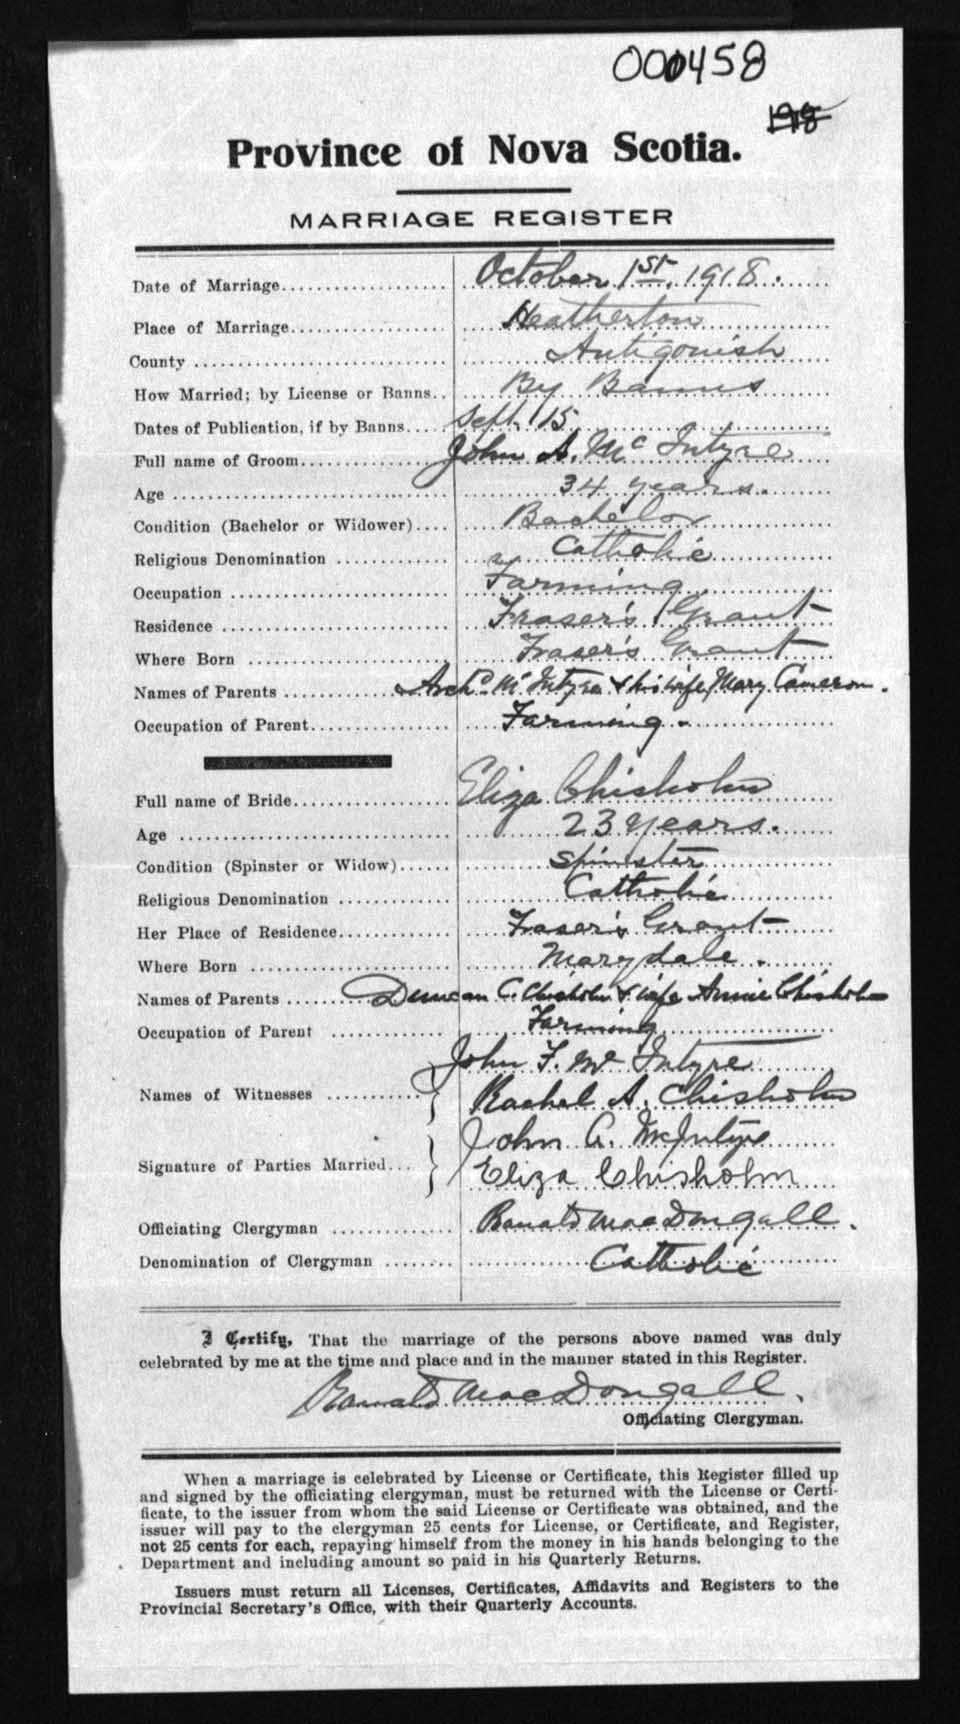 000458
1918
Province of Nova Scotia.
MARRIAGE REGISTER
Date of Marriage.................... October 1st. 1918.
Place of Marriage.................. Heatherton
County .............................. Antigonish
How Married; by License or Banns.. By Banns
Dates of Publication, if by Banns.... Sept. 15
Full name of Groom................. John A. Mc Intyre
Age .................................. 34 years.
Condition (Bachelor or Widower).... Bachelor
Religious Denomination ............. Catholic
Occupation .......................... Farming
Residence ........................... Fraser's Grant
Where Born ......................... Fraser's Grant
Names of Parents .................. Archd. Mc Intyre & his wife Mary Cameron.
Occupation of Parent............... Farming.
Full name of Bride.................. Eliza Chisholm
Age .................................. 23 years.
Condition (Spinster or Widow)...... Spinster
Religious Denomination ............. Catholic
Her Place of Residence............. Fraser's Grant
Where Born ......................... Marydale.
Names of Parents ........ Duncan C. Chisholm & wife Annie Chisholm
Occupation of Parent .............. Farming
John F. Mc Intyre
Names of Witnesses ...........
Rachel A. Chisholm
John A. McIntyre
Signature of Parties Married...
Eliza Chisholm
Officiating Clergyman ............. Ranald MacDougall.
Denomination of Clergyman ........ Catholic
I Certify, That the marriage of the persons above named was duly
celebrated by me at the time and place and in the manner stated in this Register.
Ranald MacDougall.
Officiating Clergyman.
When a marriage is celebrated by License or Certificate, this Register filled up
and signed by the officiating clergyman, must be returned with the License or Certi-
ficate, to the issuer from whom the said License or Certificate was obtained, and the
issuer will pay to the clergyman 25 cents for License, or Certificate, and Register,
not 25 cents for each, repaying himself from the money in his hands belonging to the
Department and including amount so paid in his Quarterly Returns.
Issuers must return all Licenses, Certificates, Affidavits and Registers to the
Provincial Secretary's Office, with their Quarterly Accounts.